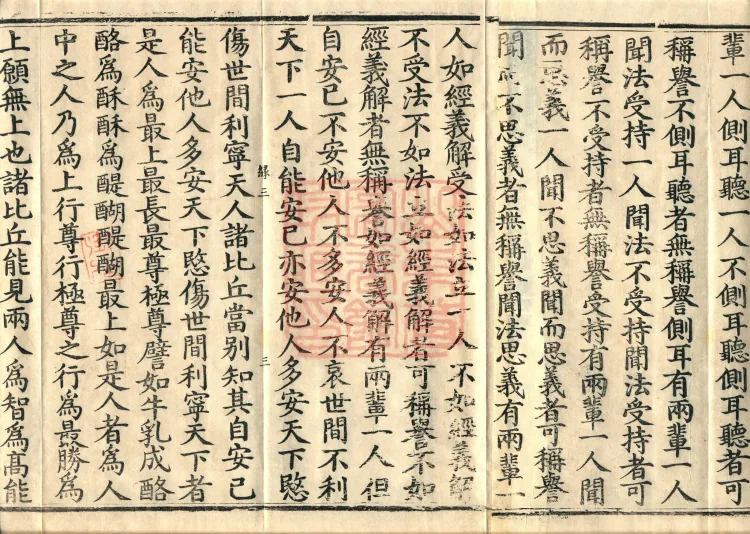 輩一人側耳聽一人不側耳聽側耳聽者可
稱譽不側耳聽者無稱譽側耳有兩輩一人
聞法受持一人聞法不受持聞法受持者可
稱譽不受持者無稱譽受持有兩輩一人聞
而思義一人聞不思義聞而思義者可稱譽
聞不思義者無稱譽聞法思義有兩輩一
人如經義解受法如法立一人不如經義解
不受法不如法立如經義解者可稱譽不如
經義解者無稱譽如經義解有兩輩一人但
自安已不安他人不多安人不哀世間不利
天下一人自能安已亦安他人多安天下愍
三 三
傷世間利寧天人諸比丘當别知其自安已
能安他人多安天下愍傷世間利寧天下者
是人爲最上最長最尊極尊譬如牛乳成酪
酪爲酥酥爲醍醐醍醐最上如是人者爲人
中之人乃爲上行尊行極尊之行爲最勝爲
上願無上也諸比丘能見兩人爲智爲髙能